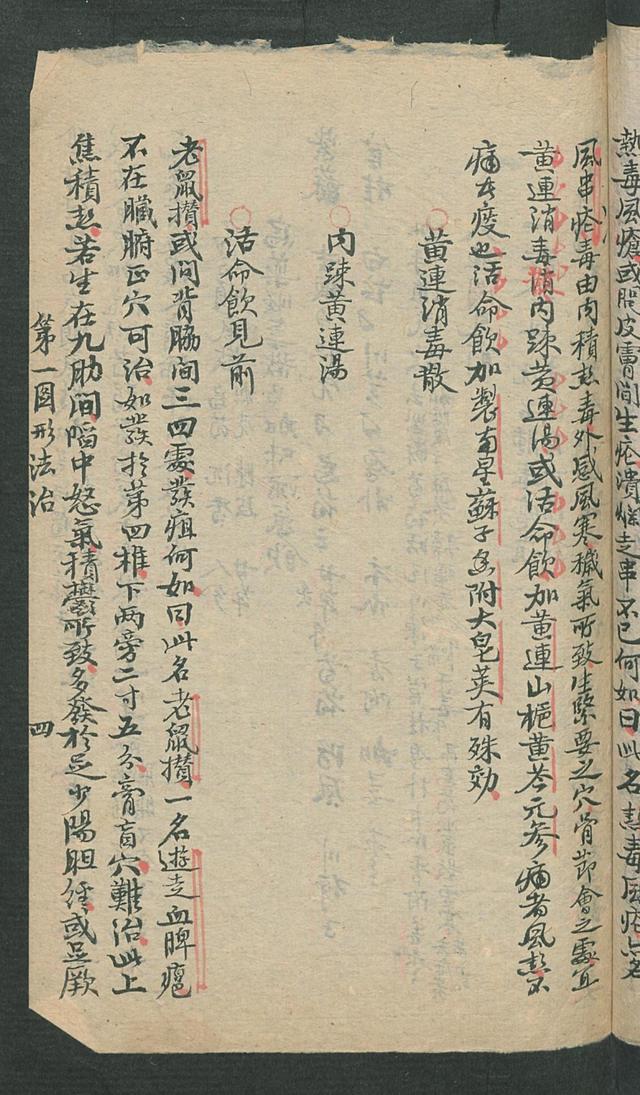 熱毒風瘡或腿皮膚間生瘡潰爛走串不已何如曰此名熱毒風瘡一名
風串瘡毒由内積熱毒外感風寒穢氣所致生緊要之穴骨節會之處宜
黄連消毒散内踈黄連湯或活命飲加黄連山梔黄芩元參痛者風熱不
痛者疫也活命飲加製南星蘇子香附大皂莢有殊効
黄連消毒散
内踈黄連湯
活命飲見前
老鼠攅或間背脇間三四處發疽何如曰此名老鼠攅一名遊走血脾瘡
不在臓腑正穴可治如發於第四椎下两旁二寸五分膏盲穴難治此上
焦積熱若生在九肋間陷中怒氣積鬱所致多發於足少陽胆経或足厥
第一圖形法治 四